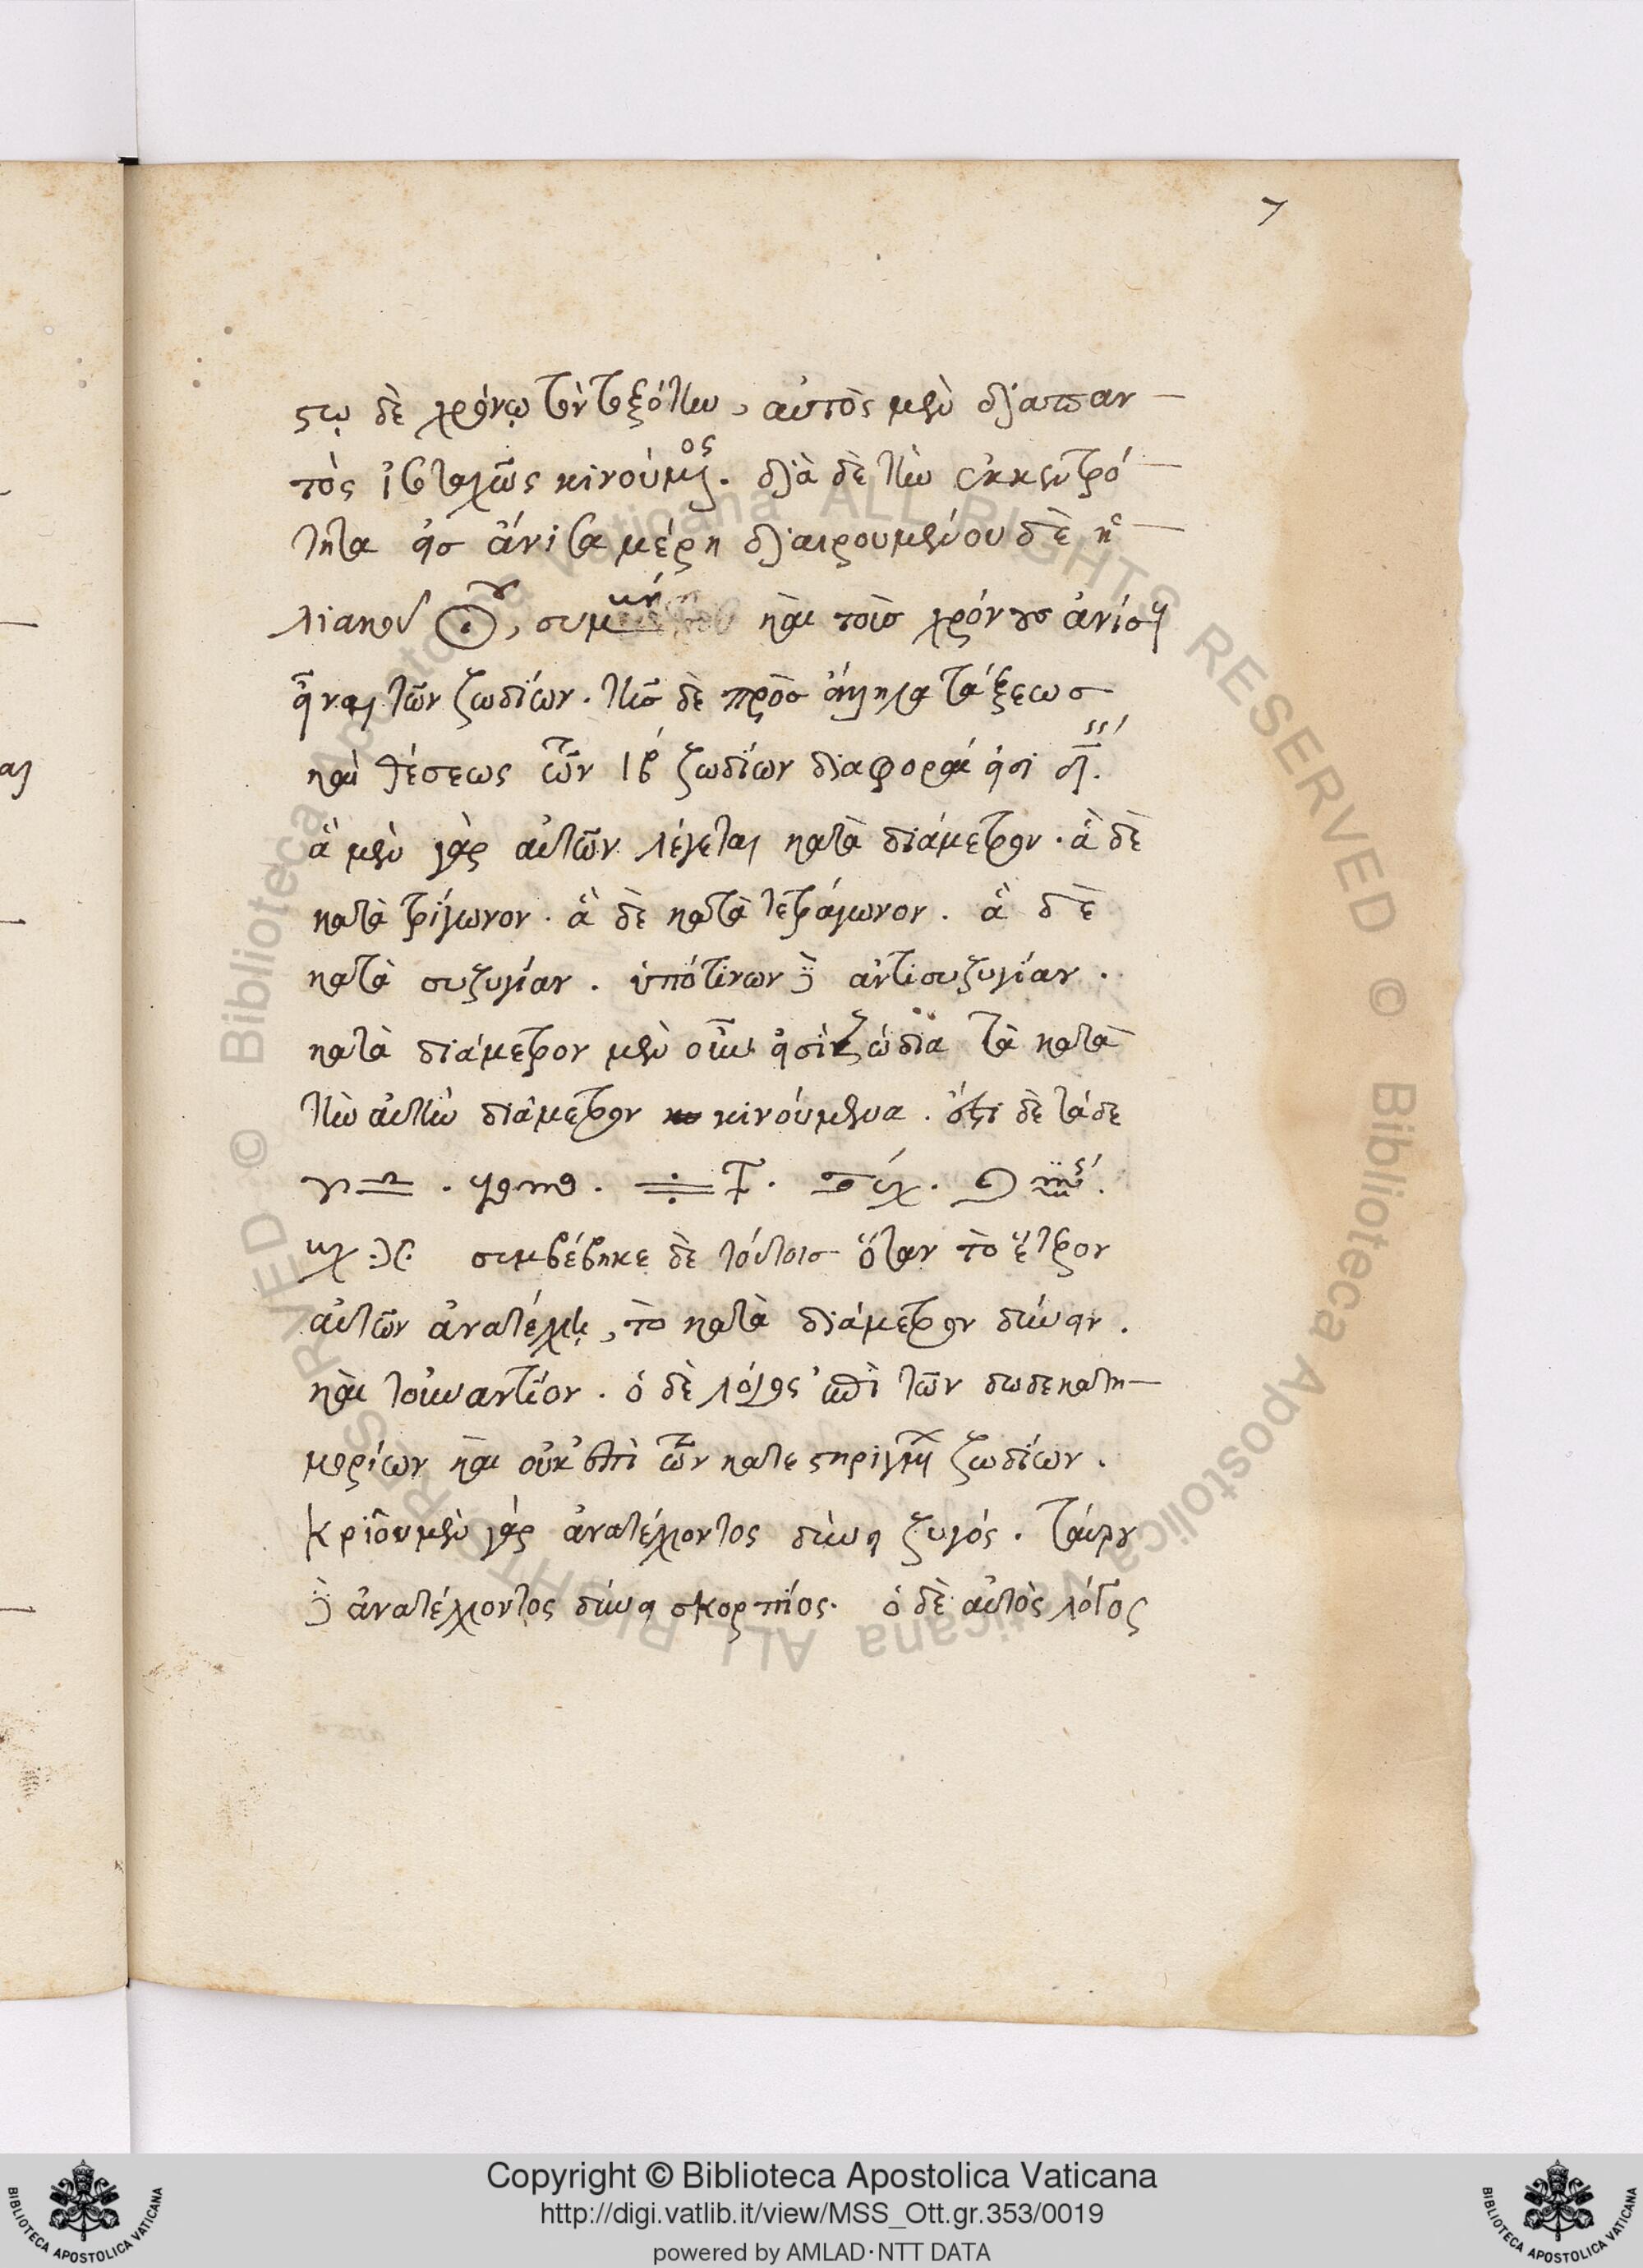 7
στῳ δὲ χρόνῳ τὴν τοξότου, αὐτὸς μὲν διαπαν–
τὸς ἰσοταχῶς κινούμενος. διὰ δὲ τὴν ἐκκεντρό–
τητα εἰς ἄνισα μέρη διαιρουμένου δὲ ἡ–
λιακοῦ, καὶ τοῖς χρόνους ἀνίσους
εἶναι τῶν ζωδίων. τῆς δὲ πρὸς ἄλληλα τάξεως
καὶ θέσεως τῶν ιβ ζωδίων διαφοραί εἰσι δ.
ἃ μὲν γὰρ αὐτῶν λέγεται κατὰ διάμετρον. ἃ δὲ
κατὰ τρίγωνον. ἃ δὲ κατὰ τετράγωνον. ἃ δὲ
κατὰ συζυγίαν. ὑπό τινων δὲ ἀντισυζυγίαν.
κατὰ διάμετρον μὲν οὖν εἰσὶ ζώδια τὰ κατὰ
τὴν αὐτὴν διάμετρον κινούμενα. ἔστι δὲ τάδε
συμβέβηκε δὲ τούτοις ὅταν τὸ ἕτερον
αὐτῶν ἀνατέλλῃ, τὸ κατὰ διάμετρον δύνειν.
καὶ τοὐναντίον. ὁ δὲ λόγος ἐπὶ τῶν δωδεκατη–
μορίων καὶ οὐκ ἐπὶ τῶν κατεστηριγμένων ζωδίων.
κριοῦ μὲν γὰρ ἀνατέλλοντος δύνει ζυγός. ταύρου
δὲ ἀνατέλλοντος δύνει σκορπίος. ὁ δὲ αὐτὸς λόγος
© Biblioteca Apostolica Vaticana ALL RIGHTS RESERVED © Biblioteca Apostolica Vaticana ALL RIGHTS RESERVED
Copyright © Biblioteca Apostolica Vaticana
http://digi.vatlib.it/view/MSS_Ott.gr.353/0019
powered by AMLAD·NTT DATA
BIBLIOTECA APOSTOLICA VATICANA
BIBLIOTECA APOSTOLICA VATICANA